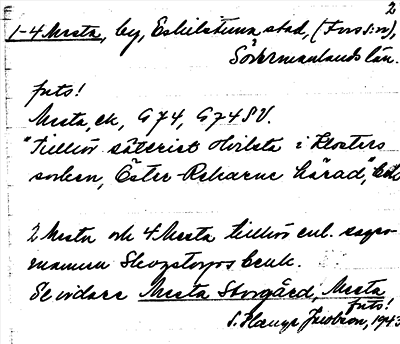 2
1-4 Mesta, by, Eskilstuna stad, (Fors s:n),
Södermanlands län.
forts!
Mesta, ek, G 74, G 74 SV.
"Tillhör säteriet Hvilsta i Klosters
socken, Öster-Rekarne härad",
2 Mesta och 4 Mesta tillhör enl. sages-
mannen Skogstorps bruk.
Se vidare Mesta Storgård, Mesta
forts!
S. Jacobson, 1943